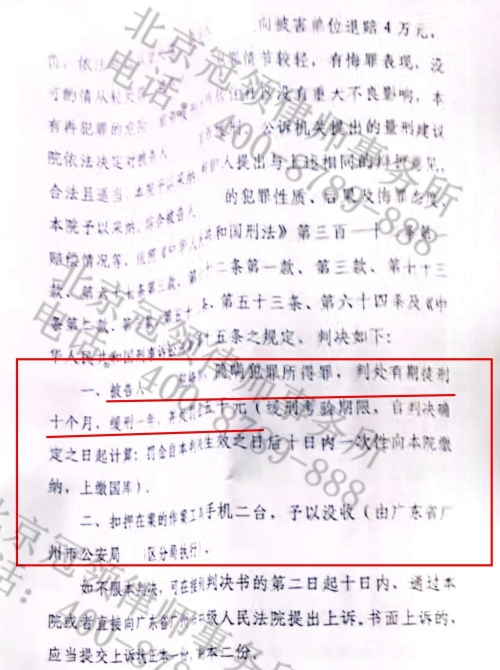 向被害单位退赔4万元，
罚，依法 情节较轻，有悔罪表现，没
可酌情从轻处 没有重大不良影响，本
有再犯罪的危险 公诉机关提出的量刑建议
院依法决定对被告人 人提出与上述相同的辩护意见，
合法且适当，本院予以采纳 的犯罪性质、后果及悔罪态度、
本院予以采纳。综合被告人 共和国刑法》第三百一十 条第一
赔偿情况等，依照《中华人民 十二条第一款、第三款，第七十三
款、第六十七条第三款、第 、第五十三条、第六十四条及《中
条第二款、第三款、第五十 十五条之规定，判决如下：
华人民共和国刑事诉讼法
一、被告人 隐瞒犯罪所得罪，判处有期徒刑
十个月，缓刑一年，并处罚金五千元（缓刑考验期限，自判决确
定之日起计算；罚金自本判决生效之日后十日内一次性向本院缴
纳，上缴国库）。
二、扣押在案的作案工具手机二台，予以没收（由广东省广
州市公安局 区分局执行）。
如不服本判决，可在接到判决书的第二日起十日内，通过本
院或者直接向广东省广州市中级人民法院提出上诉。书面上诉的，
应当提交上诉状正本一份，副本二份。
北京冠领律师事务所
电话：400-8789-888
北京冠领律师事务所
电话：400-8789-888
北京冠领律师事务所
电话：400-8789-888